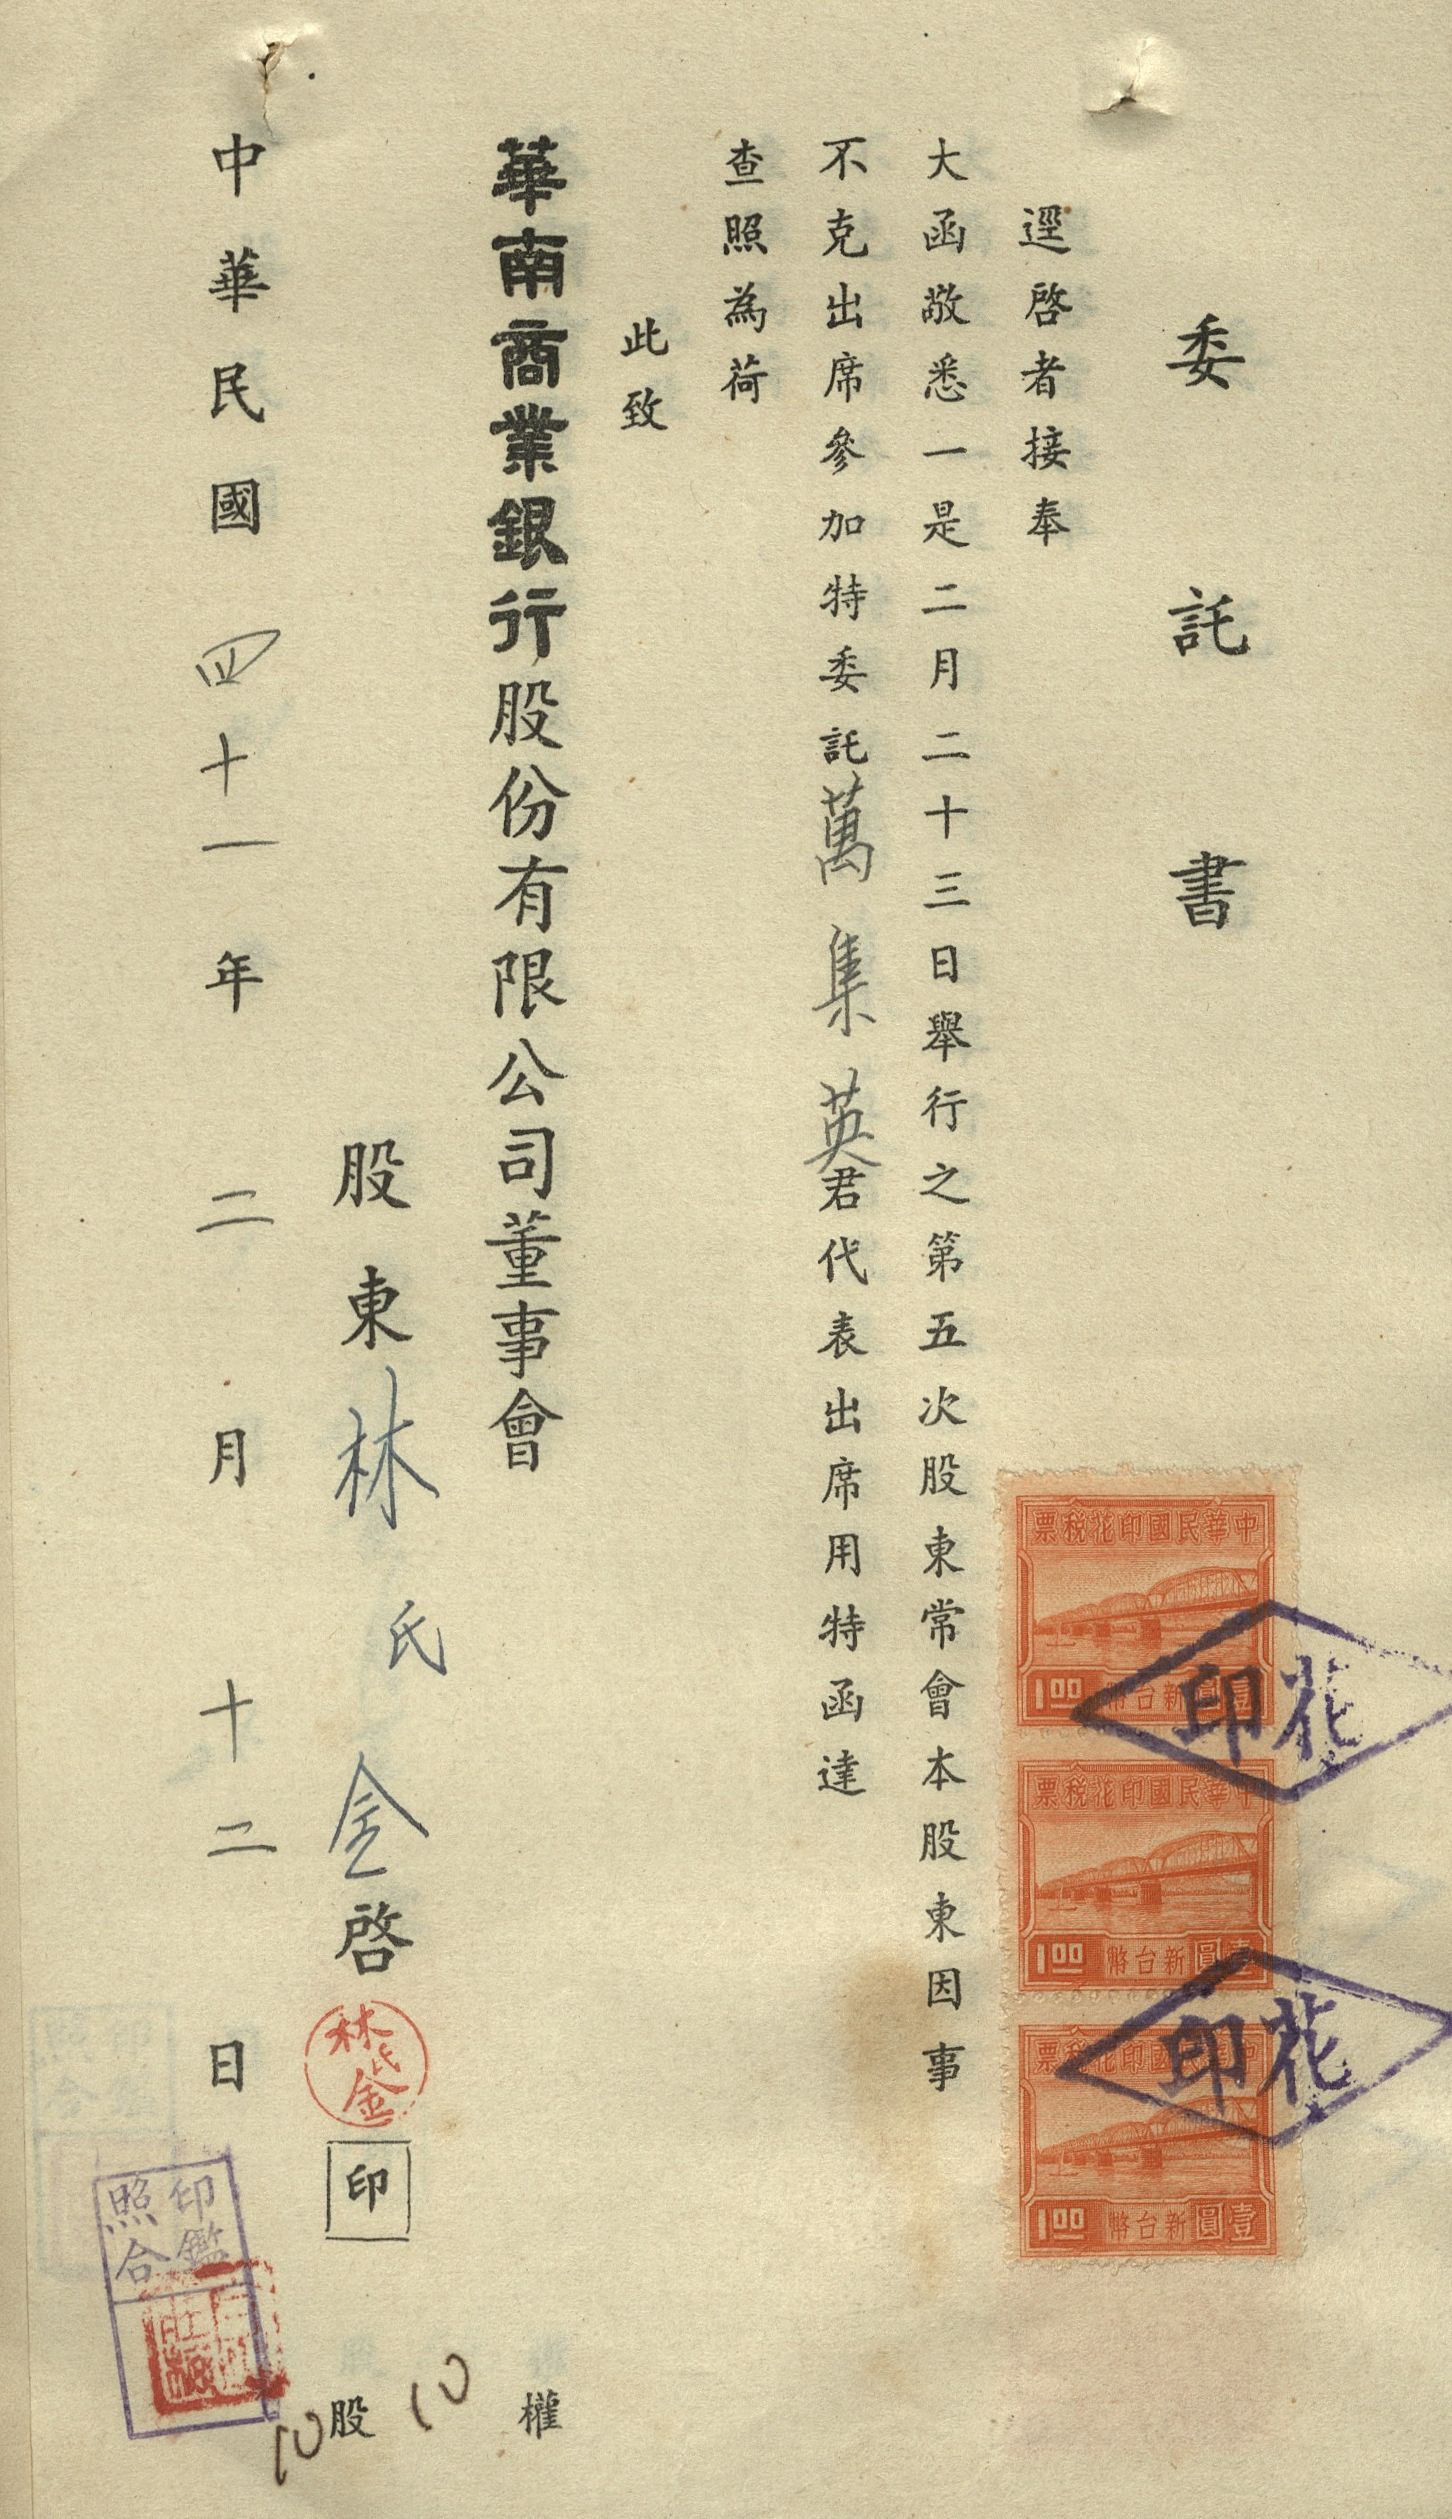 委託書
逕啓者接奉
大函敬悉一是二月二十三日舉行之第五次股東常會本股東因事
不克出席參加特委託萬集英君代表出席用特函達
查照為荷
此致
華南商業銀行股份有限公司董事會
股東林氏金啓
林氏金
印
中華民國四十一年二月十二日
權
10
股
10
印鑑
照合
中華民國印花稅票
1.00 新台幣壹圓
中華民國印花稅票
1.00 新台幣壹圓
中華民國印花稅票
1.00 新台幣壹圓
印花
印花